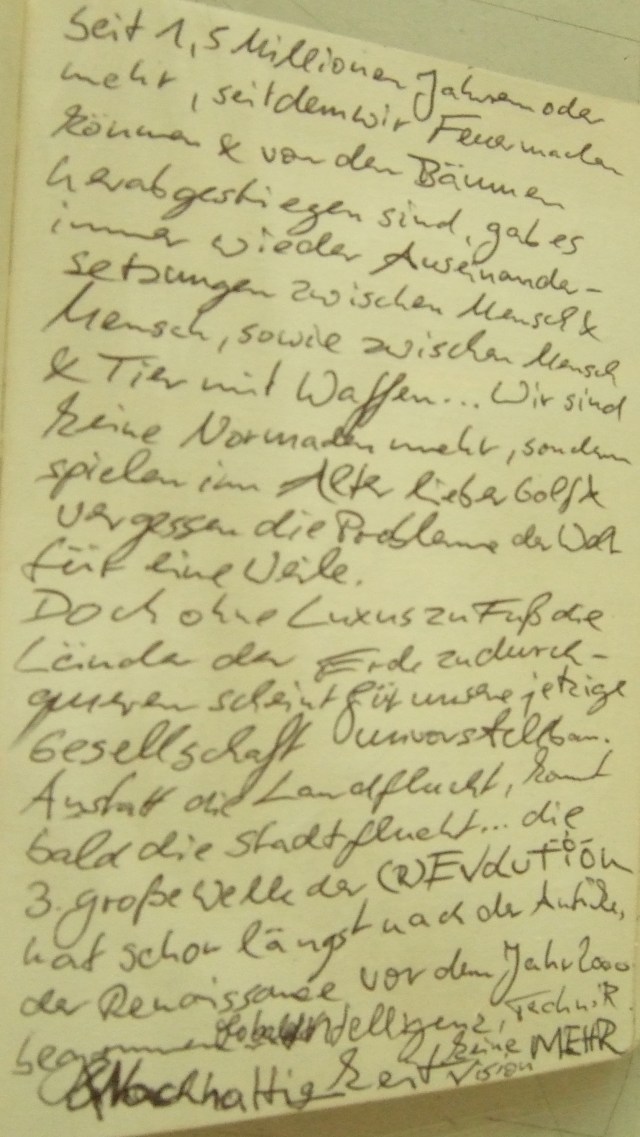 Seit 1,5 Millionen Jahren oder
mehr, seitdem wir Feuer machen
können & von den Bäumen
herabgestiegen sind, gab es
immer wieder Auseinander-
setzungen zwischen Mensch &
Mensch, sowie zwischen Mensch
& Tier mit Waffen... Wir sind
keine Normaden mehr, sondern
spielen im Alter lieber Golf &
vergessen die Probleme der Welt
für eine Weile.
Doch ohne Luxus zu Fuß die
Länder der Erde zu durch-
queren scheint für unsere jetzige
Gesellschaft unvorstellbar.
Anstatt die Landflucht, kommt
bald die Stadtflucht... die
3. große Welle der (R)EVOLUTION
hat schon längst nach der Antike,
der Renaissance vor dem Jahr 2000
begonnen Intelligenz, Technik
Nachhaltigkeit keine Vision MEHR